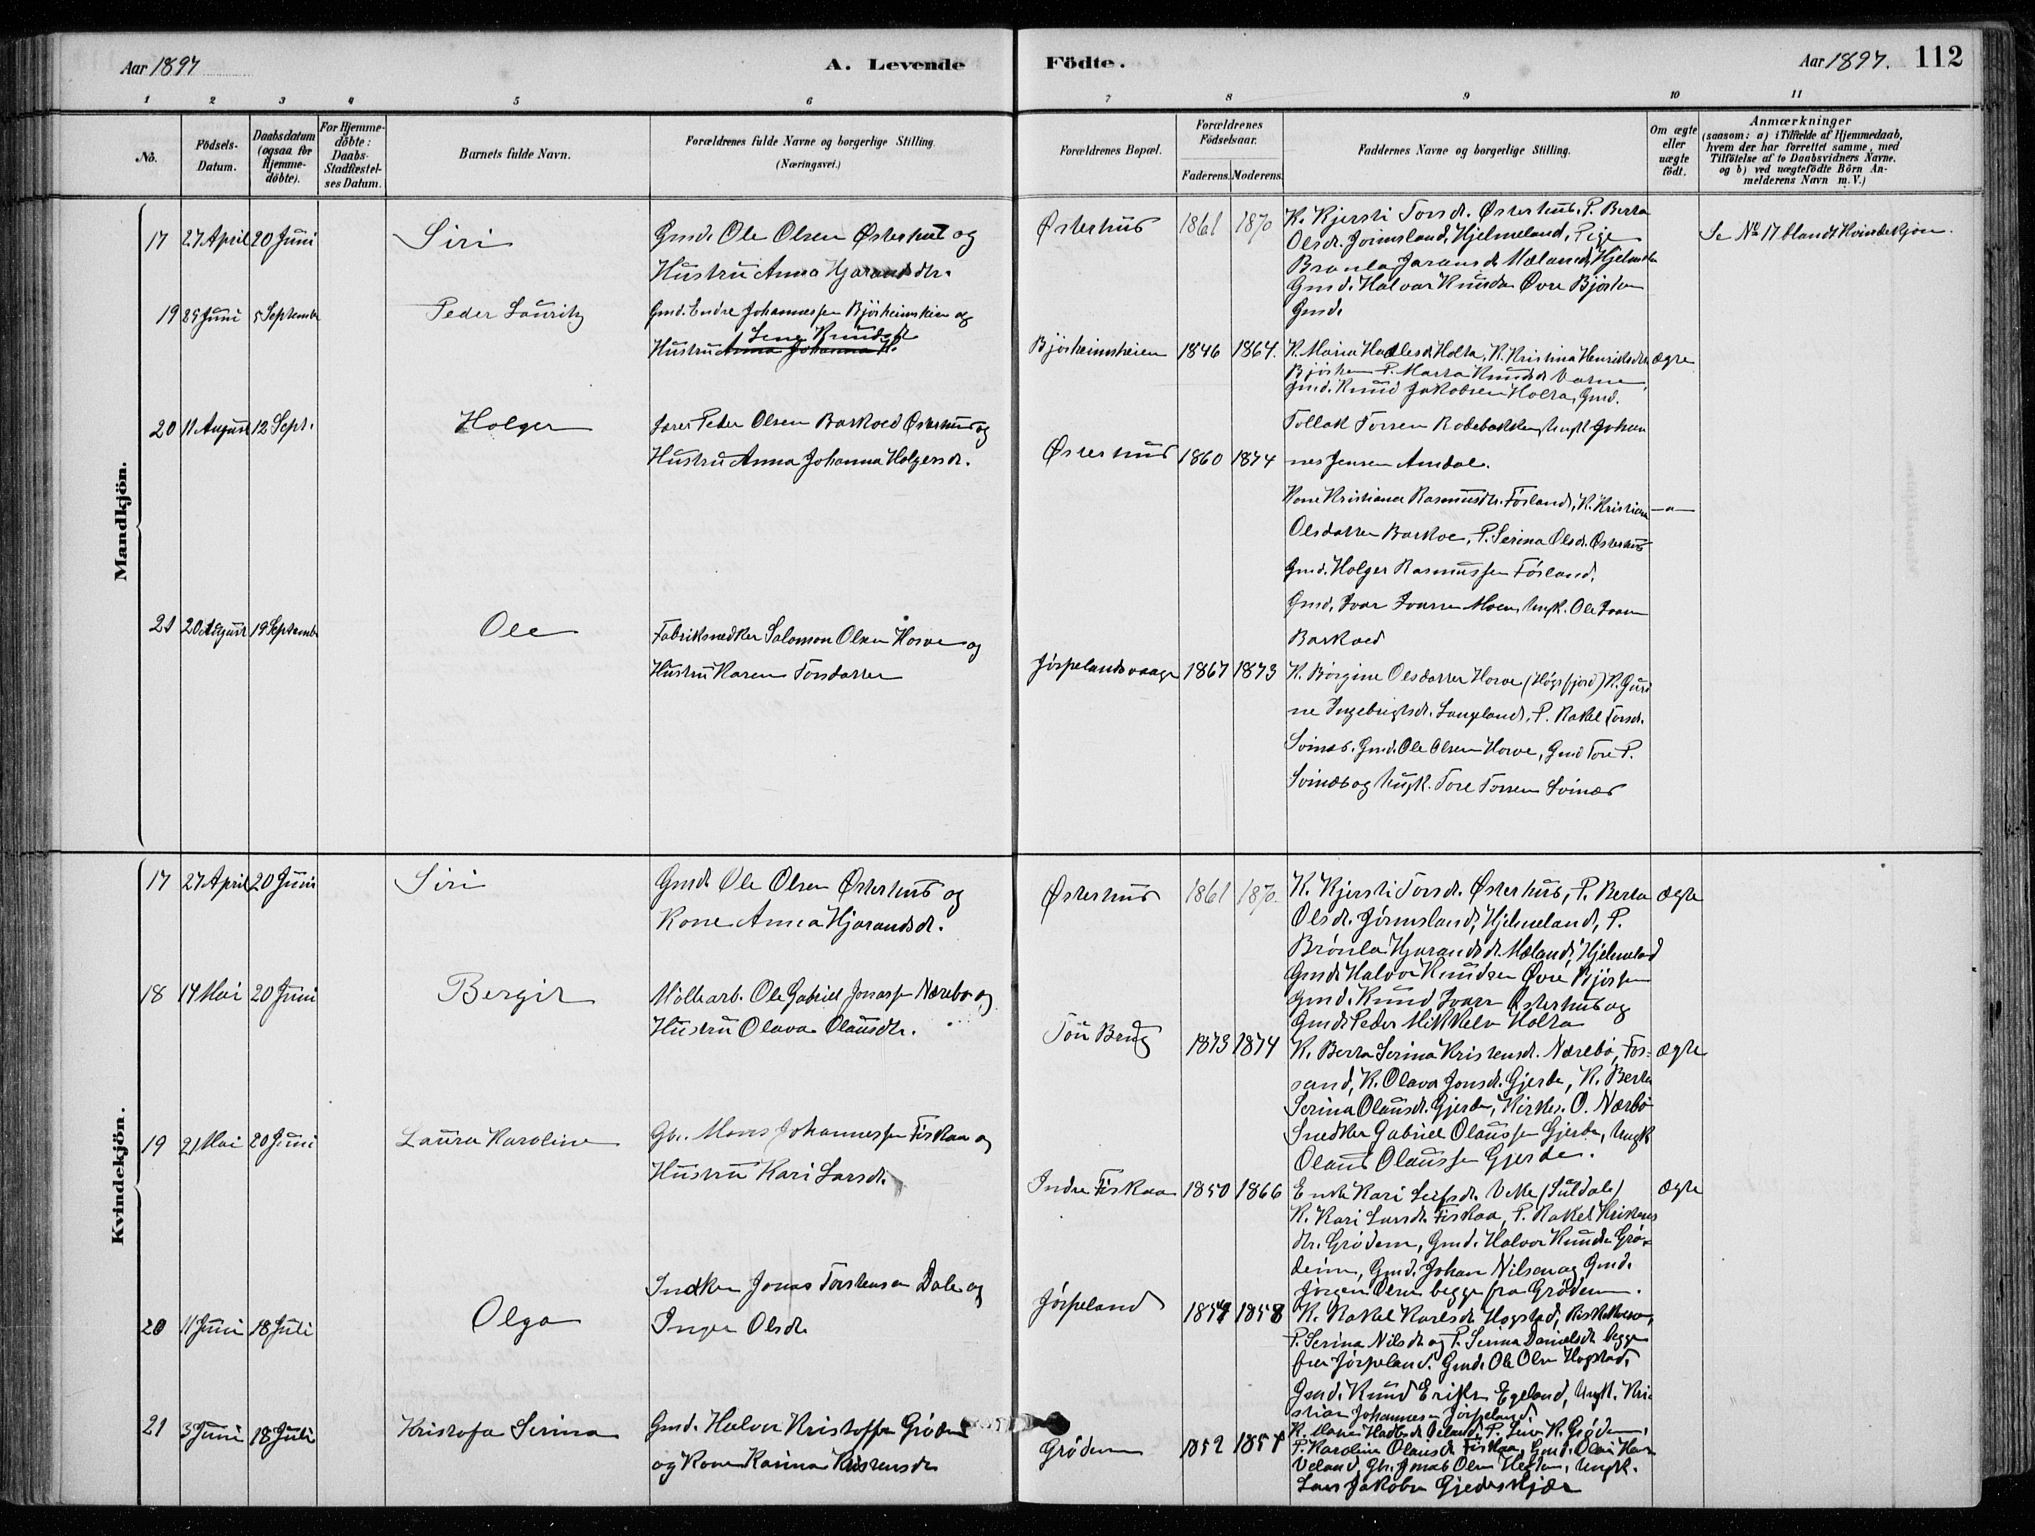 Aar 1897
A. Levende
Födte.
Aar 1897. 112
1 2 3 4 5 6 7 8 9 10 11
No.
Födsels-
Datum.
Daabsdatum
(ogsaa for
Hjemme-
döbte).
For Hjemme-
döbte:
Daabs-
Stadfæstel-
ses Datum.
Barnets fulde Navn.
Forældrenes fulde Navne og borgerlige Stilling.
(Næringsvei.)
Forældrenes Bopæl.
Forældrenes
Födselsaar.
Faderens. Moderens.
Faddernes Navne og borgerlige Stilling.
Om ægte
eller
uægte
födt.
Anmærkninger
(saasom: a) i Tilfælde af Hjemmedaab,
hvem der har forrettet samme, med
Tilföielse af to Daabsvidners Navne.
og b) ved uægtefödte Börn An-
melderens Navn m. V.)
Mandkjön.
17 27 April 20 Juni Siri
Gmd. Ole Olsen Østerhus og
Hustru Anna Hjarandsdtr.
Østerhus 1861 1870
K. Kjersti Torsdr. Østerhus, P. Berta
Olsdr. Jörmsland, Hjelmeland, Pige
Gmd. Halvor Knudsn Øvre
Gmd.
Se No 17 blandt Kvindekjön.
19 25 Juni 5 September Peder Lauritz
Gmd. Endre Johannessen Bjørheimsheien og
Lene Knudsdr
Hustru Anna Johanna H.
Bjørheimsheien 1846 1864.
K. Maria Holta, K. Kristina Henriksdtr ægte
P. Marta Knudsdr
Gmd. Knud Jakobsen Holta, Gmd.
Tollak Torsen Rodebakken, Ungk. Johan
nes Jensen Amdal.
20 11 August 12 Sept. Holger
Peder Olsen Barkved Østerhus og
Hustru Anna Johanna Holgersdr.
Østerhus 1860 1874
Kone Kristiane Rasmusdtr. Fösland, K. Kristiane —"—
Olsdatter Barkve, P. Serina Olsdr. Østerhus
Gmd. Holger Rasmussen Fösland.
Gmd. Ivar Ivarsn Moen, Ungk. Ole Ivarsn
Barkved
21 20 August 19 September Ole
Fabriksnedker Salomon Olsen Horve og
Hustru Karen Torsdatter
Jørpelandsvaage 1867 1873
K. Börgine Olsdatter Horve (Högsfjord) K. Guri
ne Ingebrigtsdr. Langeland, P. Rakel Torsdr.
Svinæs. Gmd. Ole Olsen Horve, Gmd Tore P.
Svinæs og Ungk. Tore Torsen Svinæs
Kvindekjön.
17 27 April 20 Juni Siri
Gmd. Ole Olsen Østerhus og
Kone Anna Hjarandsdr.
Østerhus 1861 1870.
K. Kjersti Torsdr. Østerhus, P. Berta ægte
Olsdr. Jörmsland, Hjelmeland, P.
Brönla Hjarandsdr. Mæland, Hjelmeland
Gmd. Halvor Knudsen Øvre
Gmd. Knud Ivarsn Østerhus og
Gmd. Peder Mikkelsn Holta
18 14 Mai 20 Juni Bergit
Møllearb. Ole Gabriel Jonassen Nærebø og
Hustru Olava Olausdtr.
Tou Brug 1873 1874
K. Berta Serina Kristensdr. Nærebø, Fos- ægte
sand, K. Olava Jonsdr. Gjerde, K. Berta
Serina Olausdr. Gjerde, Kirkes. O. Nærbø
Snedker Gabriel Olaussen Gjerde, Ungk
Olaus Olaussen Gjerde.
19 21 Mai 20 Juni Laura Karoline
Gbr. Mons Johannessen Fiskaa og
Hustru Kari Larsdr.
Indre Fiskaa 1850 1866
Enke Kari Leifsdr. Vette (Suldal) ægte
K. Kari Larsdr. Fiskaa, P. Rakel Kristens
dtr. Grødem, Gmd. Halvor Knudsn Grø-
deim, Gmd. Johan Nilsen og Gmd.
Jörgen Olsen begge fra Grødem.
20 11 Juni 18 Juli Olga
Snedker Jonas Torstensen Dale og
Inger Olsdr
Jørpeland 1858
K. Rakel Karlsdr Hogstad,
P. Serina Nilsdr og P. Serina Danielsdr. begge
fra Jørpeland. Gmd. Ole Olsn Hogstad,
Gmd. Knud Eriksn Egeland, Ungk. Kri
stian Johannesen Jørpeland.
21 3 Juni 18 Juli Kristofa Serina
Gmd. Halvor Kristoffer Grødem
og Kone Karina Kristensdr
Grødem 1852
P. Karoline Olausdr. Fiskaa, Gmd.
Veland, Gbr. Jonas Olsn Ungk.
Lars Jakobsn